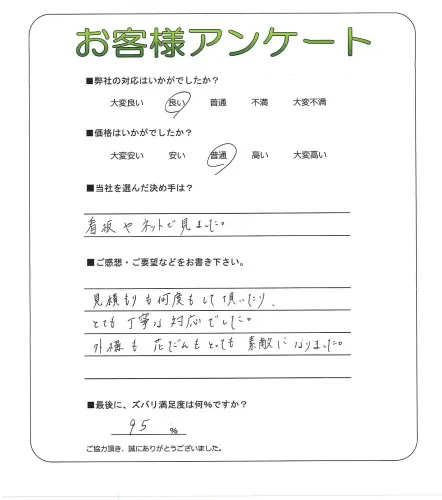 お客様アンケート
■弊社の対応はいかがでしたか?
大変良い 良い 普通 不満 大変不満
■価格はいかがでしたか?
大変安い 安い 普通 高い 大変高い
■当社を選んだ決め手は?
看板やネットで見ました。
■ご感想・ご要望などをお書き下さい。
見積もりも何度もして頂いたり、
とても丁寧な対応でした。
外構も花だんもとっても素敵になりました。
■最後に、ズバリ満足度は何%ですか?
95 %
ご協力頂き、誠にありがとうございました。